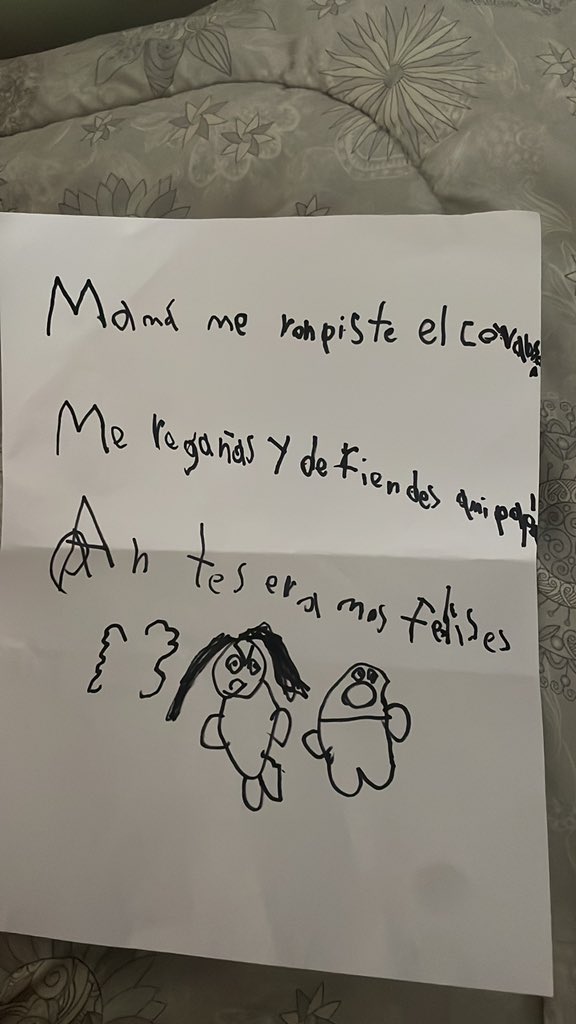 Mamá me ronpiste el
Me regañas y defiendes ami papá
An tes era mos felises